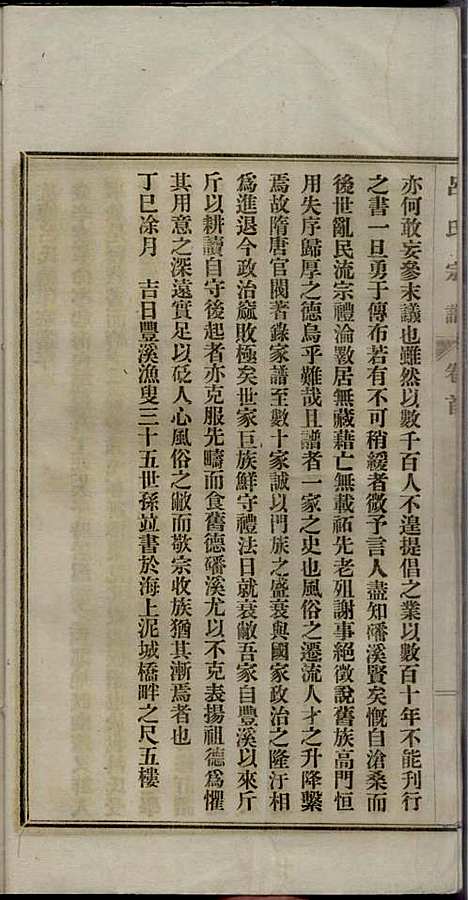 呂氏宗譜 卷首
亦何敢妄參末議也雖然以數千百人不遑提倡之業以數百十年不能刊行
之書一旦勇于傳布若有不可稍緩者微予言人盡知磻溪賢矣慨自滄桑而
後世亂民流宗禮淪斁居無藏藉亡無載祏先老殂謝事絕徵說舊族高門恒
用失序歸厚之德烏乎難哉且譜者一家之史也風俗之遷流人才之升降繫
焉故隋唐官閥著錄家譜至數十家誠以門族之盛衰與國家政治之隆汙相
爲進退今政治窳敗極矣世家巨族鮮守禮法日就衰敝吾家自豐溪以來斤
斤以耕讀自守後起者亦克服先疇而食舊德磻溪尤以不克表揚祖德爲懼
其用意之深遠實足以砭人心風俗之敝而敬宗收族猶其漸焉者也
丁巳涂月 吉日豐溪漁叟三十五世孫竝書於海上泥城橋畔之尺五樓